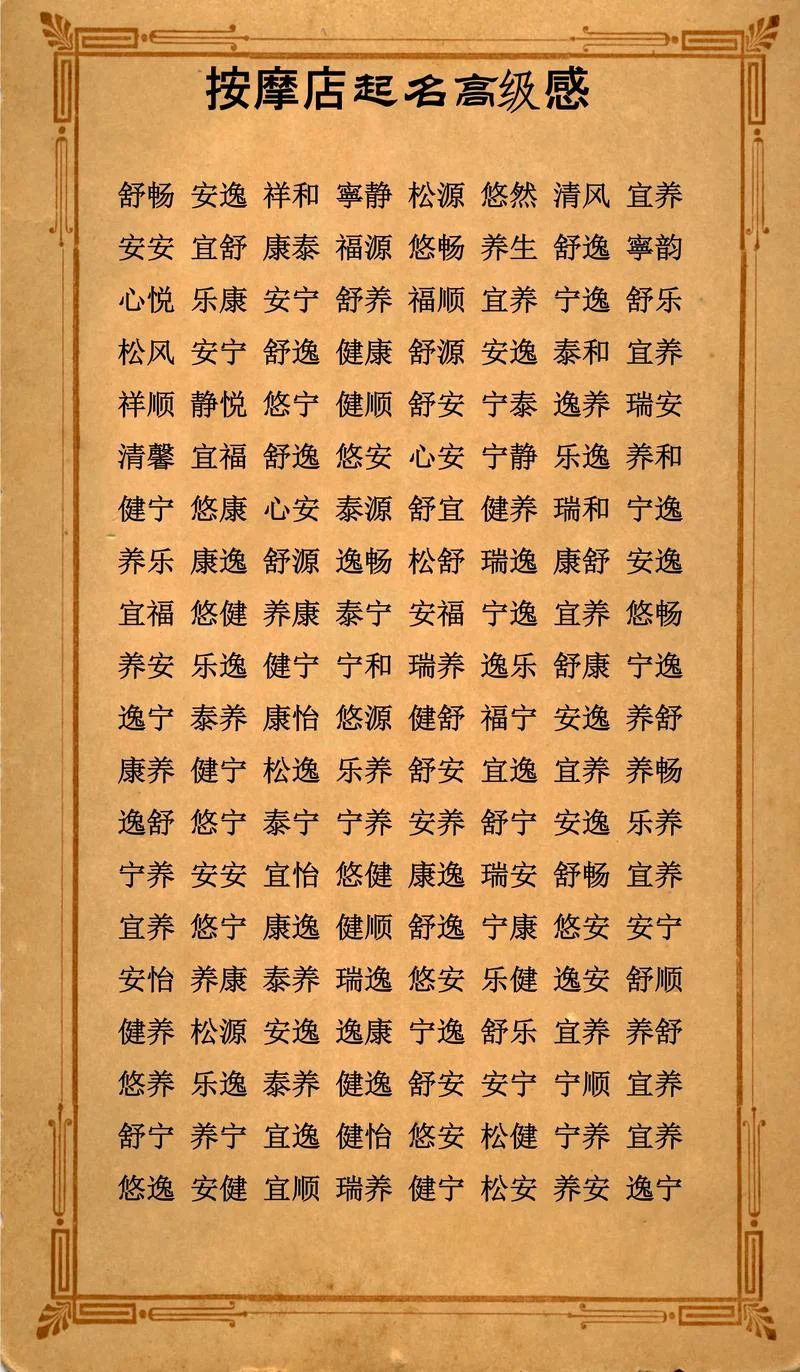 按摩店起名高级感
舒畅 安逸 祥和 寧静 松源 悠然 清风 宜养
安安 宜舒 康泰 福源 悠畅 养生 舒逸 寧韵
心悦 乐康 安宁 舒养 福顺 宜养 宁逸 舒乐
松风 安宁 舒逸 健康 舒源 安逸 泰和 宜养
祥顺 静悦 悠宁 健顺 舒安 宁泰 逸养 瑞安
清馨 宜福 舒逸 悠安 心安 宁静 乐逸 养和
健宁 悠康 心安 泰源 舒宜 健养 瑞和 宁逸
养乐 康逸 舒源 逸畅 松舒 瑞逸 康舒 安逸
宜福 悠健 养康 泰宁 安福 宁逸 宜养 悠畅
养安 乐逸 健宁 宁和 瑞养 逸乐 舒康 宁逸
逸宁 泰养 康怡 悠源 健舒 福宁 安逸 养舒
康养 健宁 松逸 乐养 舒安 宜逸 宜养 养畅
逸舒 悠宁 泰宁 宁养 安养 舒宁 安逸 乐养
宁养 安安 宜怡 悠健 康逸 瑞安 舒畅 宜养
宜养 悠宁 康逸 健顺 舒逸 宁康 悠安 安宁
安怡 养康 泰养 瑞逸 悠安 乐健 逸安 舒顺
健养 松源 安逸 逸康 宁逸 舒乐 宜养 养舒
悠养 乐逸 泰养 健逸 舒安 安宁 宁顺 宜养
舒宁 养宁 宜逸 健怡 悠安 松健 宁养 宜养
悠逸 安健 宜顺 瑞养 健宁 松安 养安 逸宁